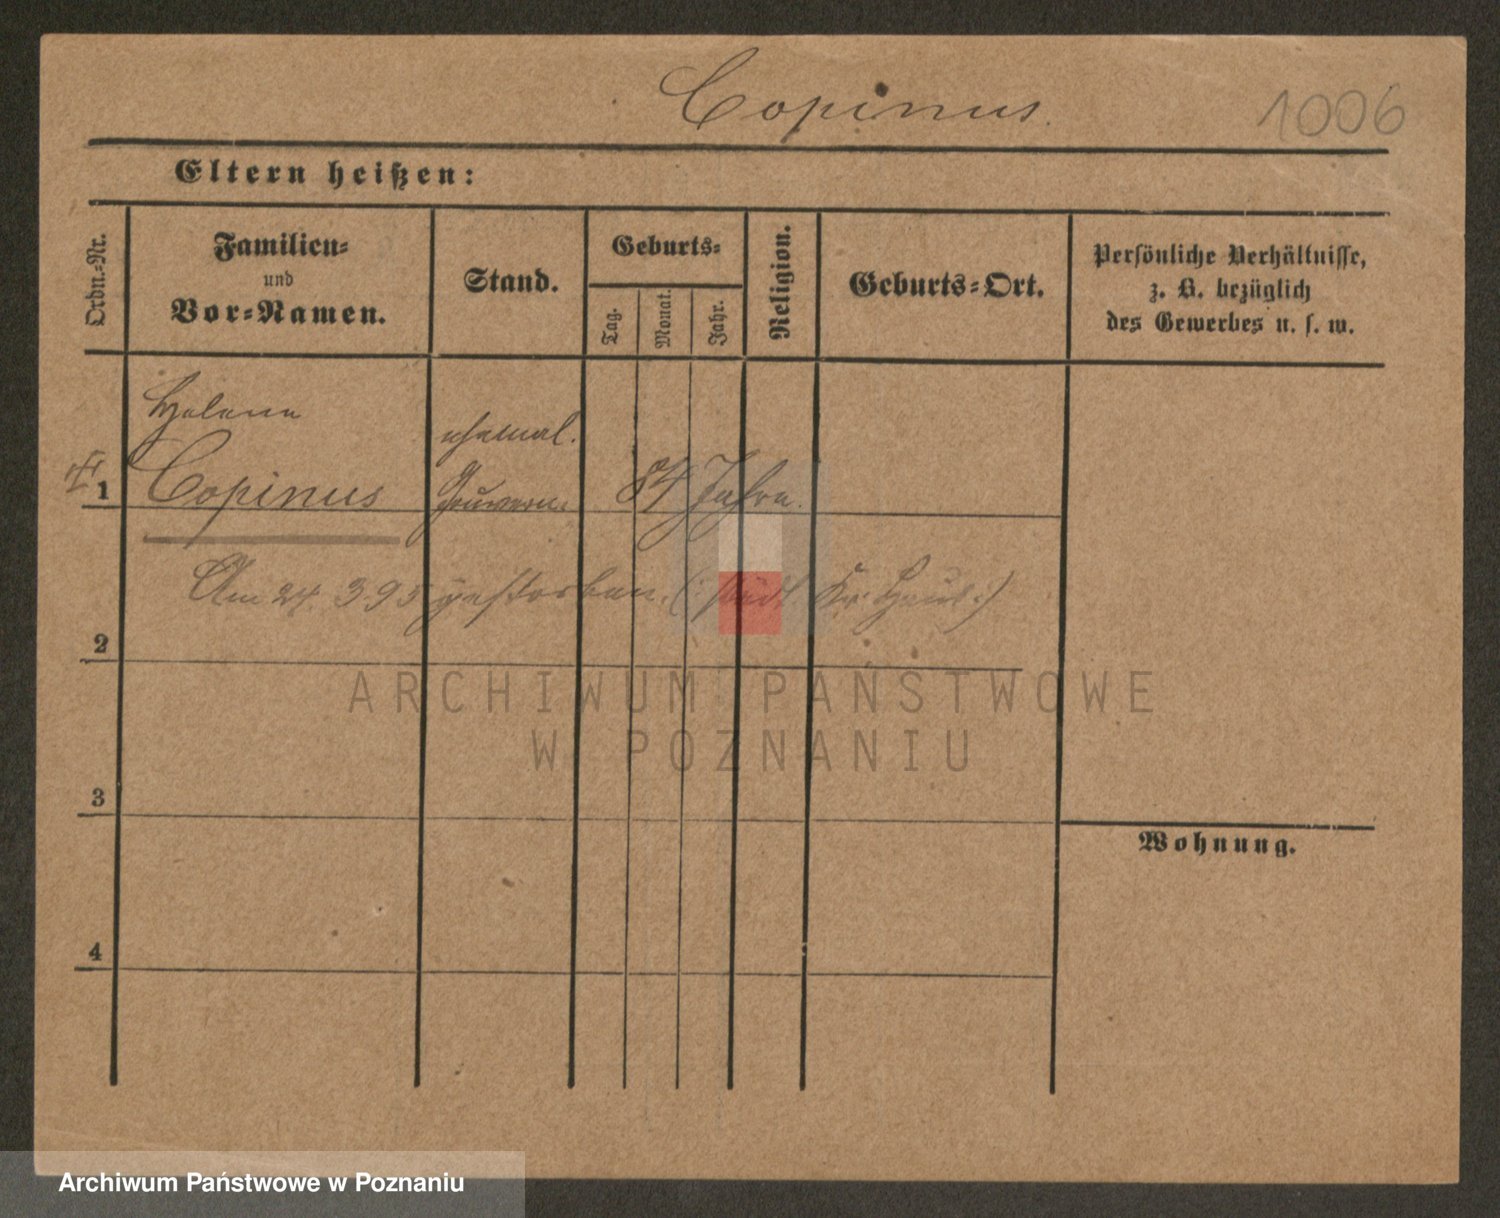 Copinus.
1006
Eltern heißen:
Ordn.-Nr.
Familien-
und
Vor-Namen.
Stand.
Geburts-
Tag.
Monat.
Jahr.
Religion.
Geburts-Ort.
Persönliche Verhältnisse,
z. B. bezüglich
des Gewerbes u. s. w.
Helene
ehemal.
1 Copinus Gouvern. 84 Jahre.
Am 24. 3. 95 gestorben. (: städt. Kr. Haus :)
2
ARCHIWUM PAŃSTWOWE
W POZNANIU
3
Wohnung.
4
Archiwum Państwowe w Poznaniu